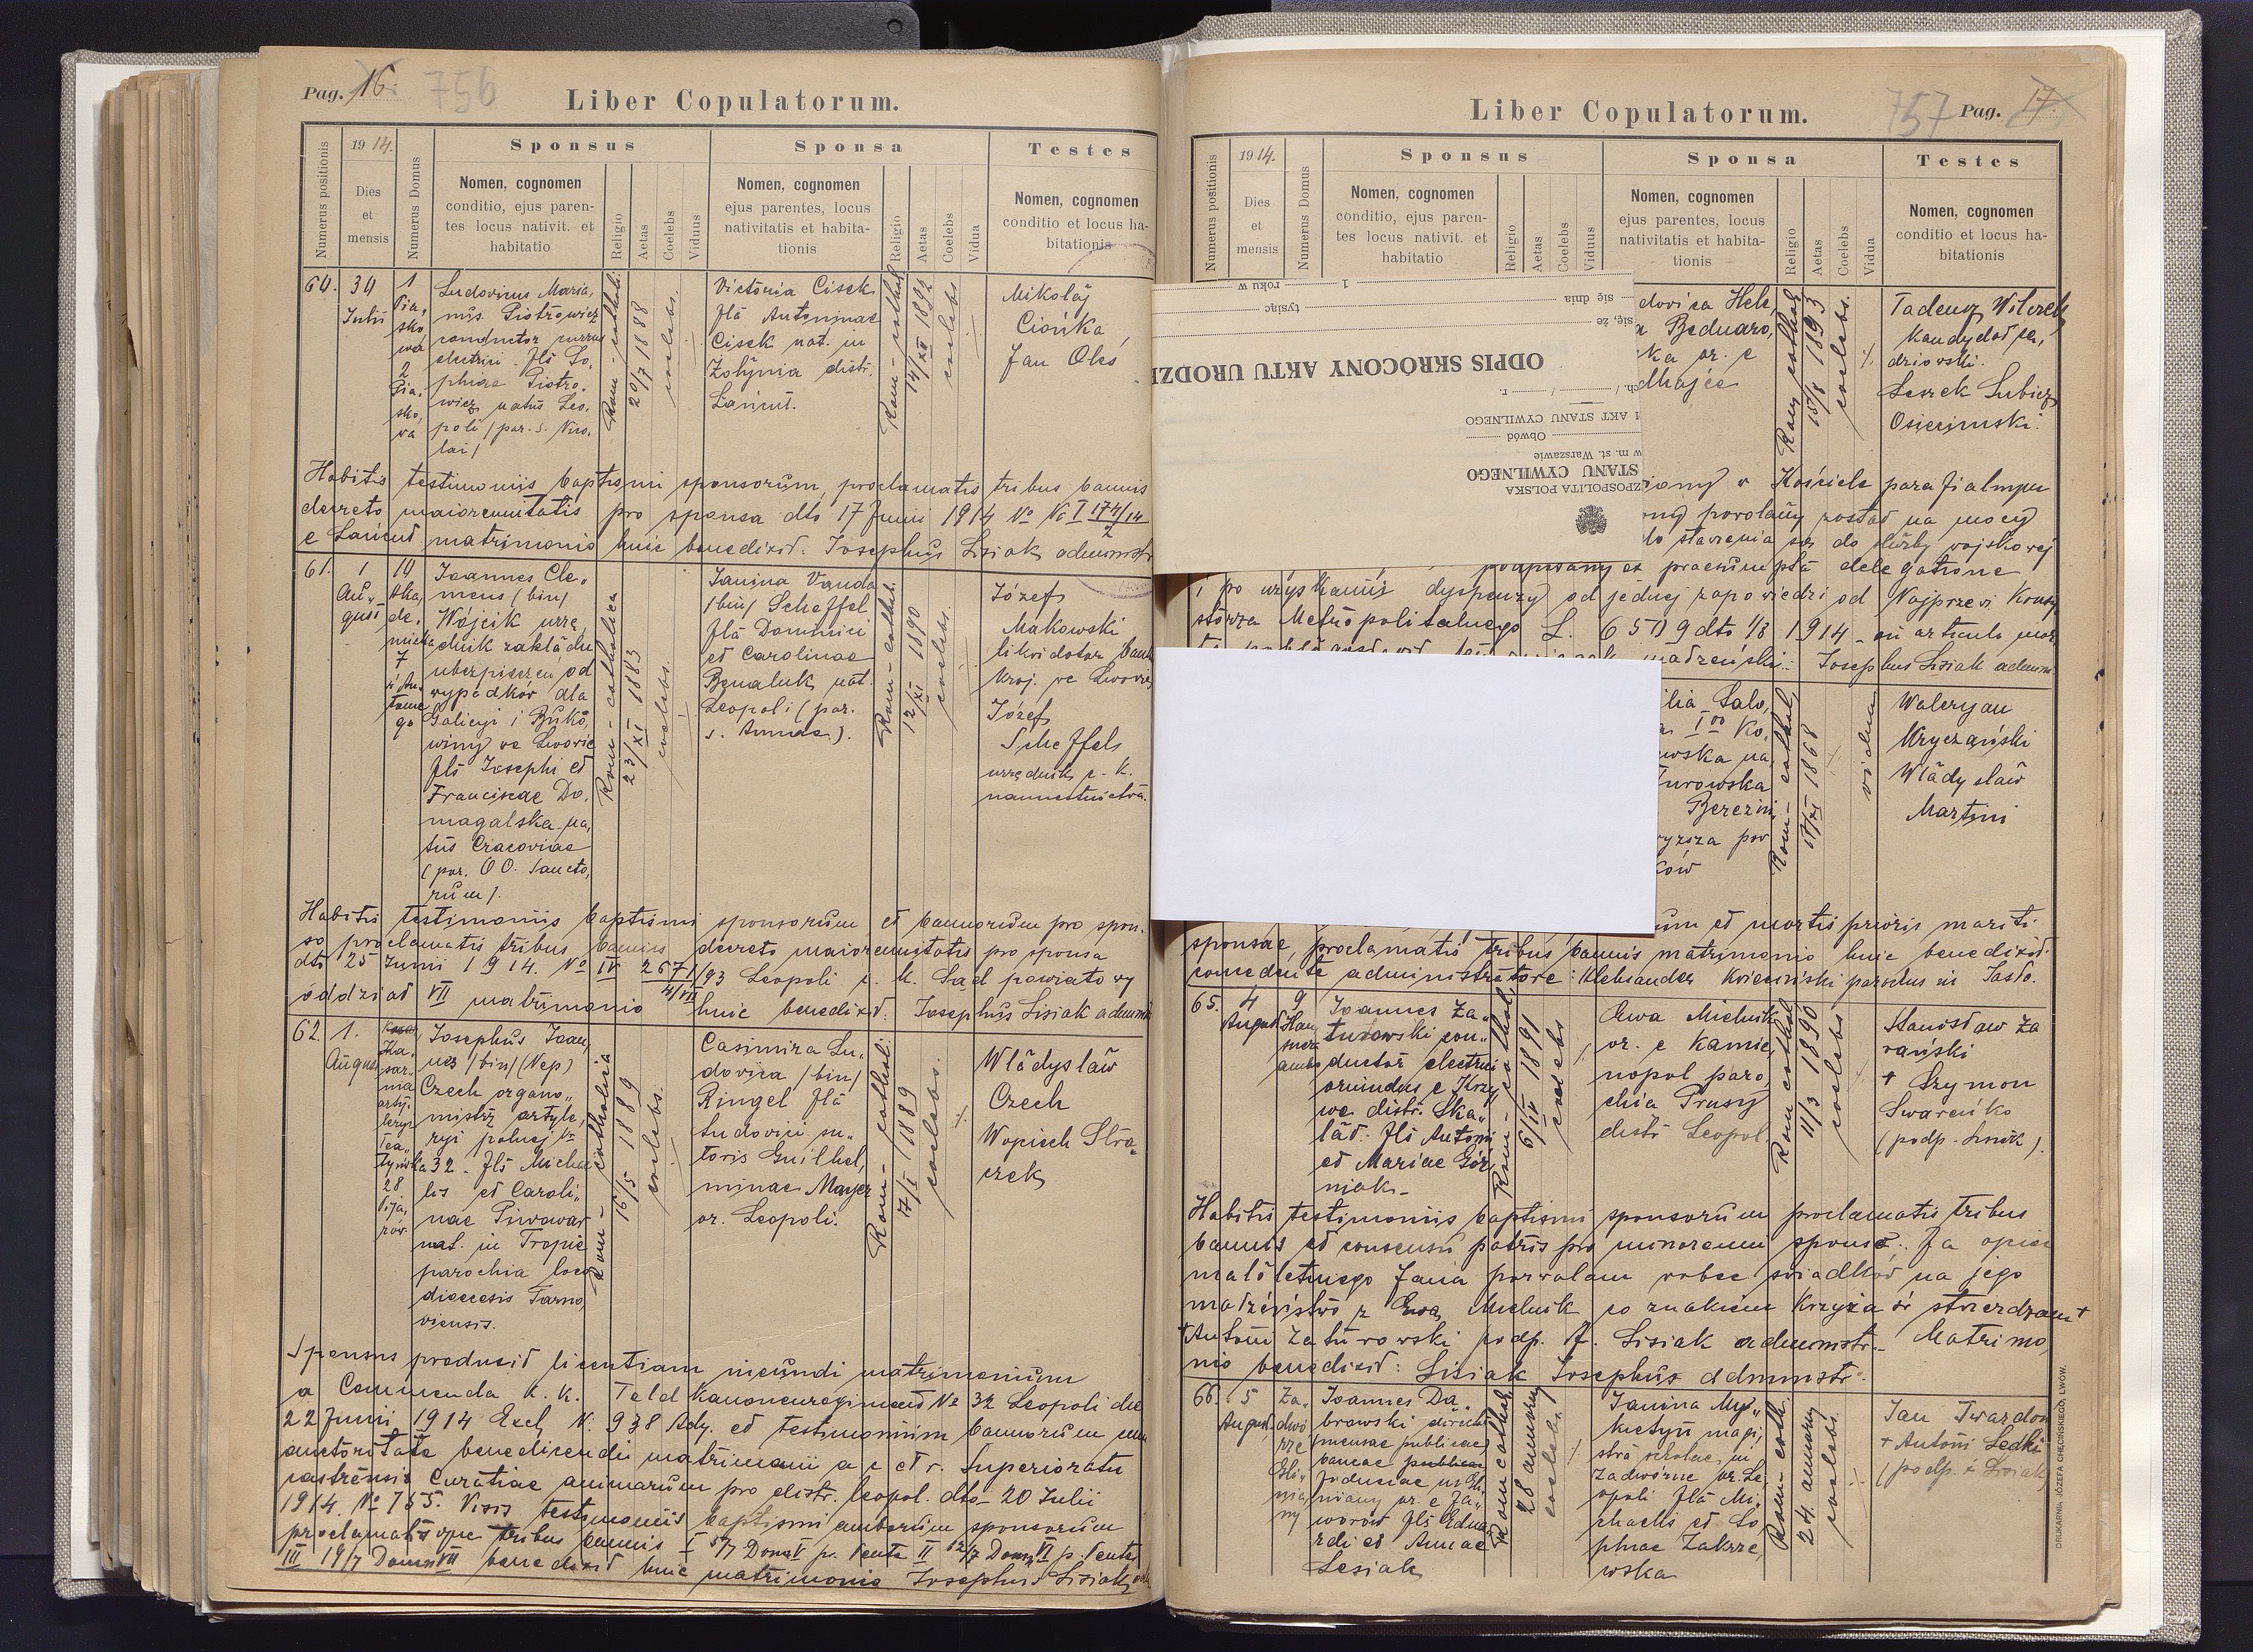 Pag. 16.
756
Liber Copulatorum.
Numerus positionis
1914.
Dies
et
mensis
Numerus Domus
Sponsus
Nomen, cognomen
conditio, ejus paren-
tes locus nativit. et
habitatio
Religio
Aetas
Coelebs
Viduus
Sponsa
Nomen, cognomen
ejus parentes, locus
nativitatis et habita-
tionis
Religio
Aetas
Coelebs
Vidua
Testes
Nomen, cognomen
conditio et locus ha-
bitationis
Ludovicus Maria,
nus Piotrowicz
conductor
electrici. fls So,
phiae Piotro,
wicz natus Leo,
poli / par. S. Nico,
lai /
Rom - cathol.
20/7 1888
coelebs.
Victoria Cisek
fla Antoninae
Cisek nat. in
Żołynia distr.
Łańcut.
Rom - cathol
14/XII 1892
coelebs
Mikołaj
Ciońka
Jan Oleś
Habitis testimoniis baptismi sponsorum, proclamatis tribus bannis
decreto maiorennitatis pro sponsa dto 17 Junii 1914 No
e Łańcut matrimonio huic benedixit: Josephus Lisiak administr
61. 1 10
Joannes Cle,
mens / bin /
Wójcik urzę,
dnik zakładu
ubezpieczeń od
wypadków dla
Galicyi i Buko,
winy we Lwowie
fls Josephi et
Franciscae Do,
magalska na,
tus Cracoviae
(par. OO. Sancto,
rum).
Rom - catholica
23/XI 1883
coelebs.
Janina Vanda
/bin/ Scheffel
fla Dominici
et Carolinae
Benaluk nat.
Leopoli (par.
s. Annae).
Rom - cathol.
12/XI 1890
coelebs.
Józef
Makowski
likwidator bank
kraj. we Lwowie
Józef
Scheffel
urzędnik c. k.
namiestnictwa.
Habitis testimoniis baptismi sponsorum et bannorum pro spon,
so proclamatis tribus bannis, decreto maiorennitatis pro sponsa
dto 25 Junii 1914. No IV 2671/93 Leopoli c. k. Sąd powiatowy
oddział VII matrimonio huic benedixit: Josephus Lisiak administr
62. 1.
August
Josephus Joan,
nes /bin/ (Nep)
Czech ogano,,
mistrz artyle,
ryi polnej Nr
32 - fls Michae
lis et Caroli,
nae Piwowar
nat. in Tropie
parochia loco
dioecesis Tarno,
viensis.
Rom - catholica
16/5 1889
coelebs.
Casimira Lu,
dovica /bin/
Ringel fla
Ludovici su,,
toris Guilhel,
minae Mayer
or. Leopoli.
Rom - cathol.
17/I 1889
coelebs.
Władysław
Czech
Wojciech Stra,
czek
Sponsus producit licentiam ineundi matrimonium
a Commenda k. k. Feld Kanonenregiment No 32 Leopoli die
22 Junii 1914 Exch. N. 938 Adj. et testimonium bannorum cum
auctoritate benedicendi matrimonii a c. et r. Superioratu
castrensis Curatiae animarum pro distr. Leopol. dto 20 Julii
1914. No 765. Visis testimoniis baptismi amborum sponsorum
proclamatisque tribus bannis I 5/7 Dom V p. Pente II 12/7 Dom VI p. Pente
III 19/7 Dom VII benedixit huic matrimonio Josephus Lisiak
Liber Copulatorum.
757
Pag. 17.
Numerus positionis
1914.
Dies
et
mensis
Numerus Domus
Sponsus
Nomen, cognomen
conditio, ejus paren-
tes locus nativit. et
habitatio
Religio
Aetas
Coelebs
Viduus
Sponsa
Nomen, cognomen
ejus parentes, locus
nativitatis et habita-
tionis
Religio
Aetas
Coelebs
Vidua
Testes
Nomen, cognomen
conditio et locus ha-
bitationis
ZPOSPOLITA POLSKA
STANU CYWILNEGO
w m. st. Warszawie
Obwód
I AKT STANU CYWILNEGO
ODPIS SKRÓCONY AKTU URODZE
się, że
tysiąc
się dnia
1 roku w
dovica Hele,
a Bednaro,
ska or. e
dhajce
Rom cathol
15/8 1893
coelebs.
Tadeusz Wilczek
kandydat sę,
dziowski.
Leszek Lubicz
Osiecimski.
w Kościele parafialnym
ony powołany został na mocy
do stawienia się do służby wojskowej
podpisany ex praesumpta delegatione
i po uzyskaniu dyspenzy od jednej zapowiedzi od Najprzew. Konsy
storza Metropolitalnego L. 6509 dto 1/8 1914 - in articulo mor
Josephus Lisiak admin
ilia Salo,
Ko,
wska na,
Turowska
Berezin
pow
ków
Rom - cathol
1868
vidua
Waleryan
Kryczański
Władysław
Martini
um et mortis prioris mariti
sponsae, proclamatis tribus bannis matrimonio huic benedixit
concedente administratore: Aleksander Kwieciński parochus in Jasło.
65. 4 9
August
Joannes Za,,
turowski con,,
ductor electrici
oriundus e Krzy
we distr. Ska,,
łat. fls Antoni
et Mariae Gór
niak -
Rom - cathol.
6/IV 1891
coelebs
Ewa Mielnik
or. e Kamie,
nopol paro,
chia Prusy
distr Leopol.
Rom cathol
11/3 1890
coelebs
Stanisław Za
rański
+ Szymon
Swareńko
(podp. Lisiak).
Habitis testimoniis baptismi sponsorum proclamatis tribus
bannis et consensu patris pro minorenni sponso. Ja ojciec
małoletniego Jana pozwalam wobec świadków na jego
małżeństwo z Ewą Mielnik co znakiem Krzyża św stwierdzam +
+ Antoni Zaturowski podp. J. Lisiak administr. Matrimo,
nio benedixit: Lisiak Josephus administr.
66. 5
August.
Joannes Da,,
browski
mensae publicae
in Gli,,
niany or. e Ja,,
worów fls Edua
rdi et Annae
Lesiak
Rom cathol.
28 annorum
coelebs
Janina My,,
kietyn magi,
stra scholae in
Zadwórze or. Le
opoli fla Mi,
chaelis et So,
phiae Zakrze,
wska
Rom - cath.
24. annorum
coelebs.
Jan Twardow
+ Antoni Sedki
(podp. Lisiak)
DRUKARNIA JÓZEFA CHĘCIŃSKIEGO, LWÓW.